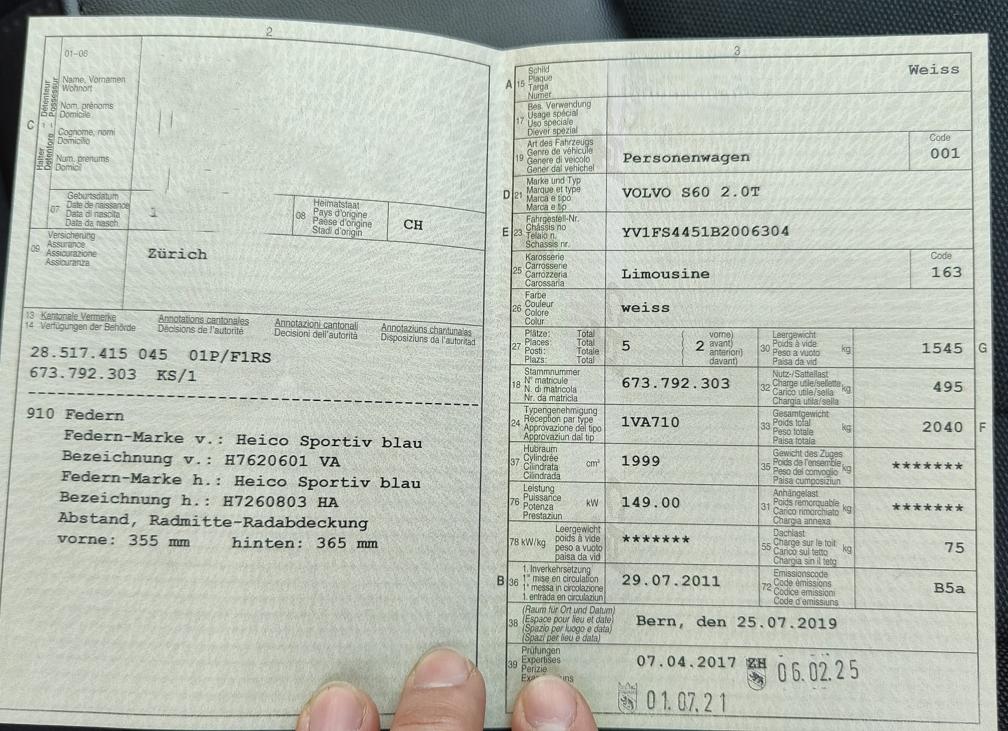 2
01-06
Name, Vornamen
Wohnort
Nom, prénoms
Domicile
Cognome, nomi
Domicilio
Num, prenums
Domicil
C
Halter - Détenteur
Detentore - Possessur
07
Geburtsdatum
Date de naissance
Data di nascita
Data da nasch.
1
08
Heimatstaat
Pays d'origine
Paese d'origine
Stadi d'origin
CH
09
Versicherung
Assurance
Assicurazione
Assicuranza
Zürich
13 Kantonale Vermerke Annotations cantonales Annotazioni cantonali Annotaziuns chantunalas
14 Verfügungen der Behörde Décisions de l'autorité Decisioni dell'autorità Disposiziuns da l'autoritad
28.517.415 045 01P/F1RS
673.792.303 KS/1
910 Federn
Federn-Marke v.: Heico Sportiv blau
Bezeichnung v.: H7620601 VA
Federn-Marke h.: Heico Sportiv blau
Bezeichnung h.: H7260803 HA
Abstand, Radmitte-Radabdeckung
vorne: 355 mm hinten: 365 mm
3
A 15
Schild
Plaque
Targa
Numer
Weiss
17
Bes. Verwendung
Usage spécial
Uso speciale
Diever spezial
19
Art des Fahrzeugs
Genre de véhicule
Genere di veicolo
Gener dal vehichel
Personenwagen
Code
001
D 21
Marke und Typ
Marque et type
Marca e tipo
Marca e tip
VOLVO S60 2.0T
E 23
Fahrgestell-Nr.
Châssis no
Telaio n.
Schassis nr.
YV1FS4451B2006304
25
Karosserie
Carrosserie
Carrozzeria
Carossaria
Limousine
Code
163
26
Farbe
Couleur
Colore
Colur
weiss
27
Plätze: Total
Places: Total
Posti: Totale
Plazs: Total
5
2
vorne)
avant)
anteriori)
davant)
30
Leergewicht
Poids à vide
Peso a vuoto
Paisa da vid
kg
1545
G
18
Stammnummer
N° matricule
N. di matricola
Nr. da matricla
673.792.303
32
Nutz-/Sattellast
Charge utile/sellette
Carico utile/sella
Chargia utila/sella
kg
495
24
Typengenehmigung
Réception par type
Approvazione del tipo
Approvaziun dal tip
1VA710
33
Gesamtgewicht
Poids total
Peso totale
Paisa totala
kg
2040
F
37
Hubraum
Cylindrée
Cilindrata
Cilindrada
cm³
1999
35
Gewicht des Zuges
Poids de l'ensemble
Peso del convoglio
Paisa cumposiziun
kg
*******
76
Leistung
Puissance
Potenza
Prestaziun
kW
149.00
31
Anhängelast
Poids remorquable
Carico rimorchiato
Chargia annexa
kg
*******
78 kW/kg
Leergewicht
poids à vide
peso a vuoto
paisa da vid
*******
55
Dachlast
Charge sur le toit
Carico sul tetto
Chargia sin il tetg
kg
75
B 36
1. Inverkehrsetzung
1re mise en circulation
1a messa in circolazione
1. entrada en circulaziun
29.07.2011
72
Emissionscode
Code émissions
Codice emissioni
Code d'emissiuns
B5a
38
(Raum für Ort und Datum)
(Espace pour lieu et date)
(Spazio per luogo e data)
(Spazi per lieu e data)
Bern, den 25.07.2019
39
Prüfungen
Expertises
Perizie
07.04.2017 ZH 06.02.25
01.07.21